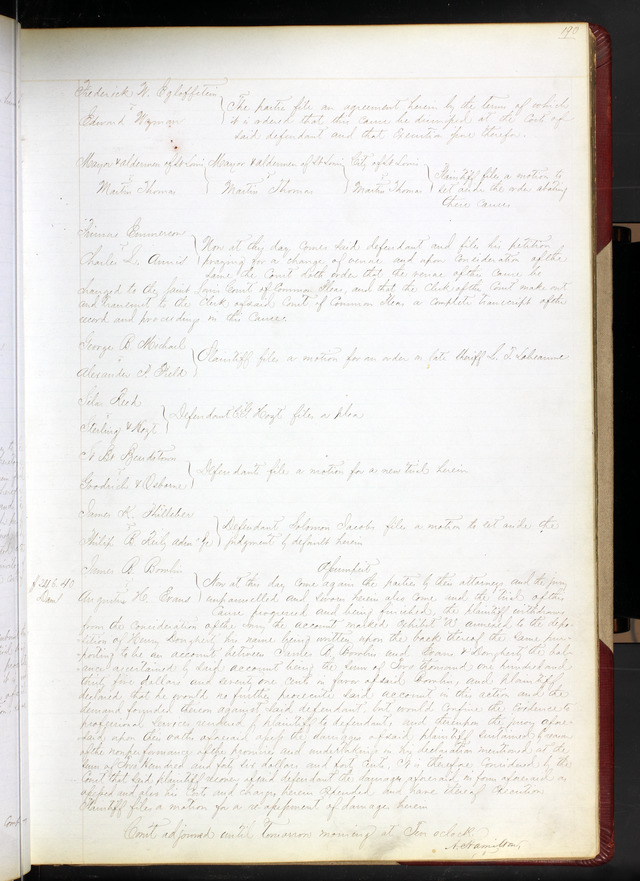 190
Frederick W. Egloffstein
vs
Edward Wyman
The parties file an agreement herein by the terms of which
it is ordered that this cause be dismissed at the Cost of
said defendant and that Execution issue therefor
Mayor & aldermen of St Louis
vs
Martin Thomas
Mayor & aldermen of St Louis
vs
Martin Thomas
City of St Louis
vs
Martin Thomas
Plaintiff files a motion to
set aside the order abating
these causes
Emmerson
vs
Charles L.
Now at this day comes said defendant and files his petition
praying for a change of venue and upon Consideration of the
same the Court doth order that the venue of this Cause be
changed to the Saint Louis Court of Common Pleas, and that the Clerk of this Court make out
and transmit to the Clerk of said Court of Common Pleas a complete transcript of the
record and proceedings in this Cause.
George R.
vs
Alexander P. Field
Plaintiff files a motion for an order on late Sheriff L. T. Labeaume
Silas Reed
vs
Sterling & Hoyt
Defendant Hoyt files a plea
S. B. Beardstown
vs
Goodrich & Osborne
Defendant files a motion for a new trial herein
James K.
vs
Philip R.
Defendant Solomon Jacobs files a motion to set aside the
judgment by default herein
$246.40
Dam's
James R. Bowlin
vs
Augustus H. Evans
Assumpsit
Now at this day come again the parties by their attorneys and the jury
empannelled and sworn herein also come and the trial of this
Cause progressed and being finished, the plaintiff withdraws
from the Consideration of the Jury the account marked Exhibit annexed to the depo-
sition of Henry Dougherty his name being written upon the back thereof the same pur-
porting to be an account between James R Bowlin and Evans & Dougherty the bal-
ance ascertained by said account being the Sum of Two thousand one hundred and
thirty five dollars and seventy one cents in favor of said Bowlin, and plaintiff
declared that he would no further prosecute said account in this action and the
demand founded thereon against said defendant but would Confine the Evidence to
professional services rendered by plaintiff to defendant, and thereupon the jury afore-
said upon their oaths aforesaid assess the damages of said plaintiff sustained by reason
of the nonperformance of the promises and undertakings in the declaration mentioned at the
sum of Two Hundred and forty six dollars and forty Cents, It is therefore Considered by the
Court that said plaintiff recover of said defendant the damages aforesaid in form aforesaid as
assessed and also his Costs and Charges herein Expended and have thereof Execution
Plaintiff files a motion for a re assessment of damages herein
Court adjourned until tomorrow morning at Ten oclock
A. Hamilton